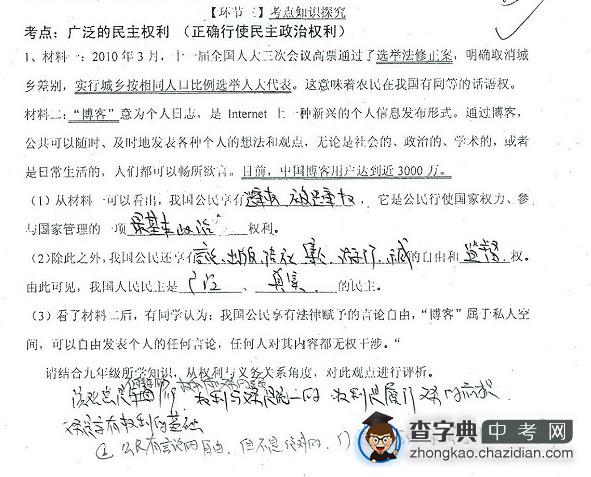 【环节三】考点知识探究
考点：广泛的民主权利 （正确行使民主政治权利）
1、材料一：2010年3月，十一届全国人大三次会议高票通过了选举法修正案，明确取消城
乡差别，实行城乡按相同人口比例选举人大代表。这意味着农民在我国有同等的话语权。
材料二：“博客”意为个人日志，是 Internet 上一种新兴的个人信息发布形式。通过博客，
公共可以随时、及时地发表各种个人的想法和观点，无论是社会的、政治的、学术的，或者
是日常生活的，人们都可以畅所欲言。目前，中国博客用户达到近3000万。
（1）从材料一可以看出，我国公民享有选举 被选举权，它是公民行使国家权力、参
与国家管理的一项 最基本政治 权利。
（2）除此之外，我国公民还享有言论、出版、结社、集会、游行、示威的自由和 监督 权。
由此可见，我国人民民主是 广泛 、 真实 的民主。
（3）看了材料二后，有同学认为：我国公民享有法律赋予的言论自由，“博客”属于私人空
间，可以自由发表个人的任何言论，任何人对其内容都无权干涉。“
请结合九年级所学知识，从权利与义务关系角度，对此观点进行评析。
权利与义务是统一的
② 公民有言论的自由，但不是绝对的，
查字典中考网
zhongkao.chazidian.com